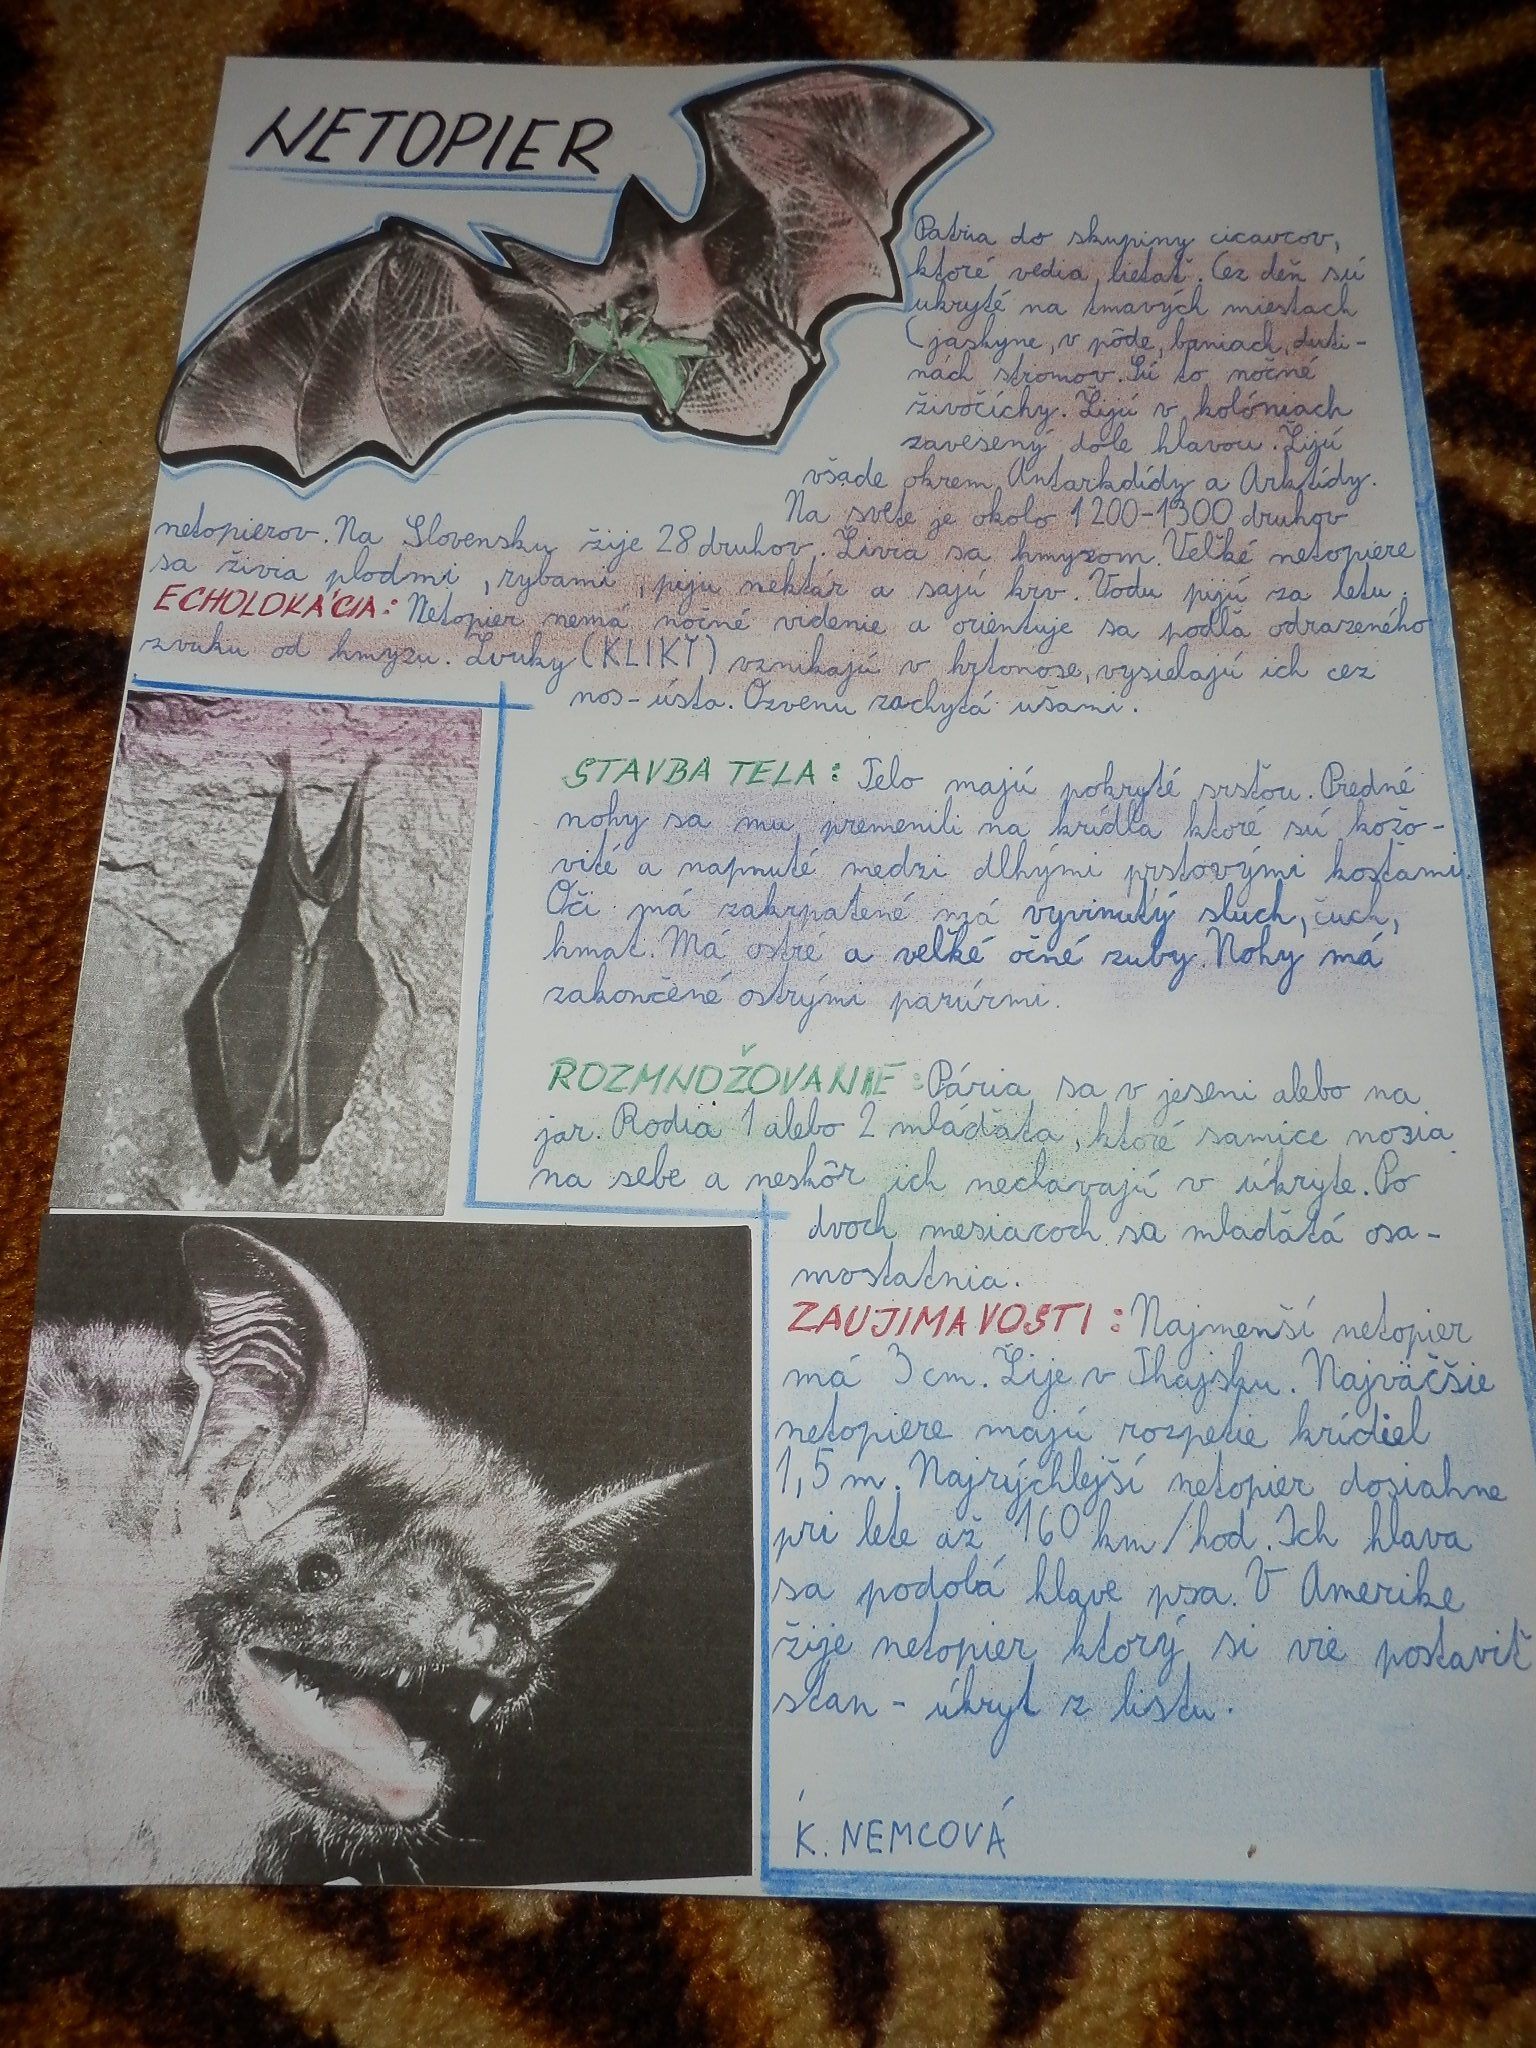 NETOPIER
Patria do skupiny cicavcov,
ktoré vedia lietať. Cez deň sú
ukryté na tmavých miestach
(jaskyne, v pôde, baniach, duti-
nách stromov. Sú to nočné
živočíchy. Žijú v kolóniach
zavesený dole hlavou. Žijú
všade okrem Antarkdídy a Arktídy.
Na svete je okolo 1200-1300 druhov
netopierov. Na Slovensku žije 28 druhov. Živia sa hmyzom. Veľké netopiere
sa živia plodmi, rybami, pijú nektár a sajú krv. Vodu pijú za letu.
ECHOLOKÁCIA: Netopier nemá nočné videnie a orientuje sa podľa odrazeného
zvuku od hmyzu. Zvuky (KLIKY) vznikajú v hrtonose, vysielajú ich cez
nos-ústa. Ozvenu zachytá ušami.
STAVBA TELA: Telo majú pokryté srsťou. Predné
nohy sa mu premenili na krídla ktoré sú kožo-
vité a napnuté medzi dlhými prstovými kosťami.
Oči má zakrpatené má vyvinutý sluch, čuch,
hmat. Má ostré a veľké očné zuby. Nohy má
zakončené ostrými pazúrmi.
ROZMNOŽOVANIE: Pária sa v jeseni alebo na
jar. Rodia 1 alebo 2 mláďata, ktoré samice nosia
na sebe a neskôr ich nechavajú v úkryte. Po
dvoch mesiacoch sa mladátá osa-
mostatnia.
ZAUJIMAVOSTI: Najmenší netopier
má 3 cm. Žije v Thajsku. Najväčšie
netopiere majú rozpetie krídiel
1,5 m. Najrýchlejší netopier dosiahne
pri lete až 160 km/hod. Ich hlava
sa podolá hlave psa. V Amerike
žije netopier ktorý si vie postaviť
stan - úkryt z listu.
K. NEMCOVÁ